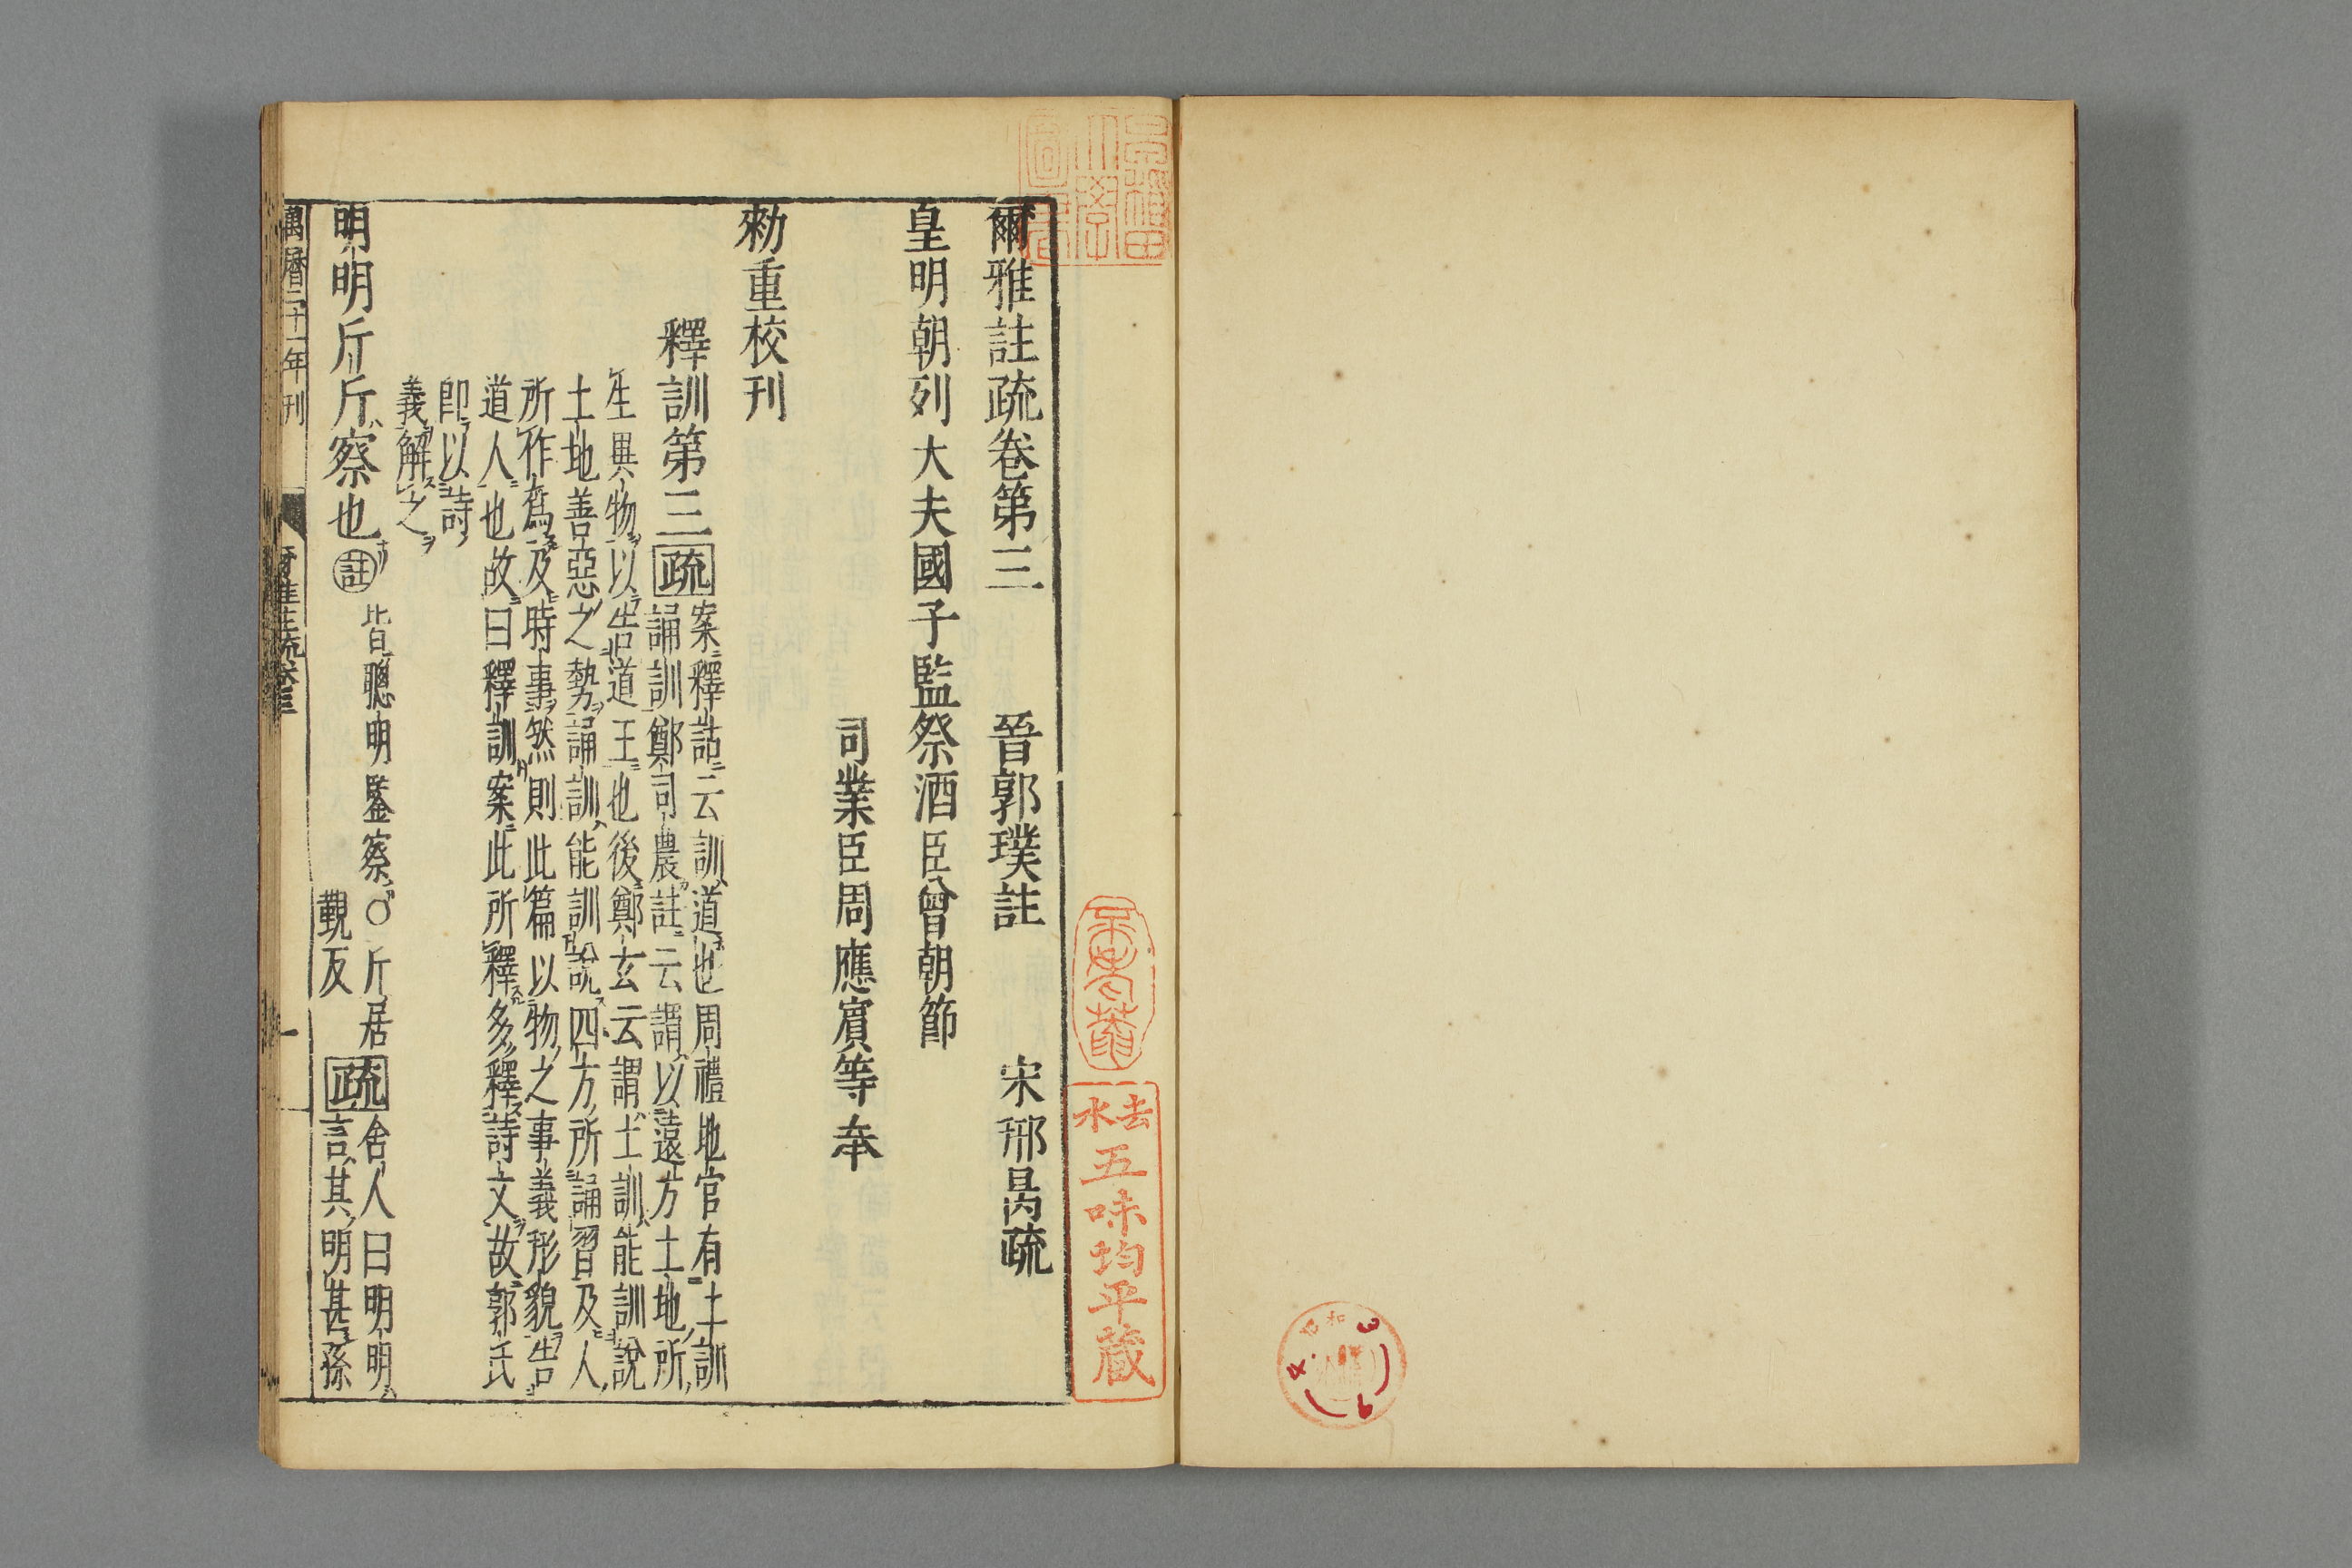 爾雅註疏卷第三　晉郭璞註　宋邢昺疏
皇明朝列大夫國子監祭酒臣曾朝節
司業臣周應賓等奉
勑重校刊
釋訓第三 疏
案釋詁云訓道也周禮地官有土訓
誦訓鄭司農註云謂以遠方土地所
生異物以告道王也後鄭玄云謂土訓能訓說
土地善惡之勢誦訓能訓說四方所誦習及人
所作爲及時事然則此篇以物之事義形貌告
道人也故曰釋訓案此所釋多釋詩文故郭氏
即以詩
義解之
明明斤斤察也 註
皆聰明鑒察○斤居
覲反
疏
舍人曰明明
言其明甚孫
萬曆二十一年刊
爾雅註疏卷三
一
去水
五味均平藏